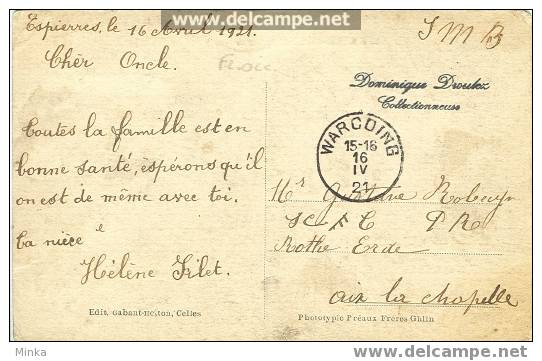 www.delcampe.net
Espierres, le 16 Avril 1921.
S M B
Chèr Oncle.
Dominique Droulez
Collectionneuse
WARCOING
15-16
16
IV
21
Toutes la famille est en
bonne santé, espérons qu'il
on est de même avec toi.
ta nièce
Hélène
Mr Gustave
Rothe Erde
aix la chapelle
Edit. Gabant-Heiton, Celles
Phototypie Préaux Frères Ghlin
Minka
www.delcampe.net